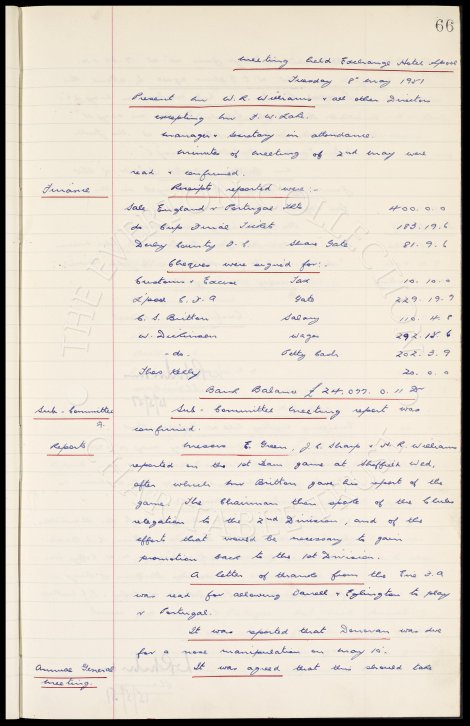 66
Meeting held Exchange Hotel L'pool
Tuesday 8th May 1951
Present Mr W. R. Williams & all other Directors
excepting Mr
Manager & Secretary in attendance.
Minutes of meeting of 2nd May were
read & confirmed.
Finance Receipts reported were:-
Sale England & Portugal tkts 400. 0. 0
do Cup Final Tickets 183. 19. 6
Derby County F. C. Share Gate 81. 9. 6
Cheques were signed for:-
Customs & Excise Tax 10. 10. 0
L'pool C. F. A Gate 229. 19. 9
C. S. Britton Salary 110. 4. 8
W. Dickinson Wages 292. 18. 6
-do- Petty Cash 202. 3. 9
Thos Kelly 20. 0. 0
Bank Balance £24,077. 0. 11 Dr
Sub-Committee Sub-Committee meeting report was
confirmed.
Reports Messrs E. Green, J. C. Sharp & H. R. Williams
reported on the 1st team game at Sheffield Wed,
after which Mr Britton gave his report of the
game. The Chairman then spoke of the Clubs
relegation to the 2nd Division, and of the
efforts that would be necessary to gain
promotion back to the 1st Division.
A letter of thanks from the Eire F.A
was read for allowing Farrell & Eglington to play
v Portugal.
It was reported that Donovan was due
for a nose manipulation on May 15.
Annual General It was agreed that this should take
Meeting.
THE EVERTON COLLECTION
CHARITABLE TRUST